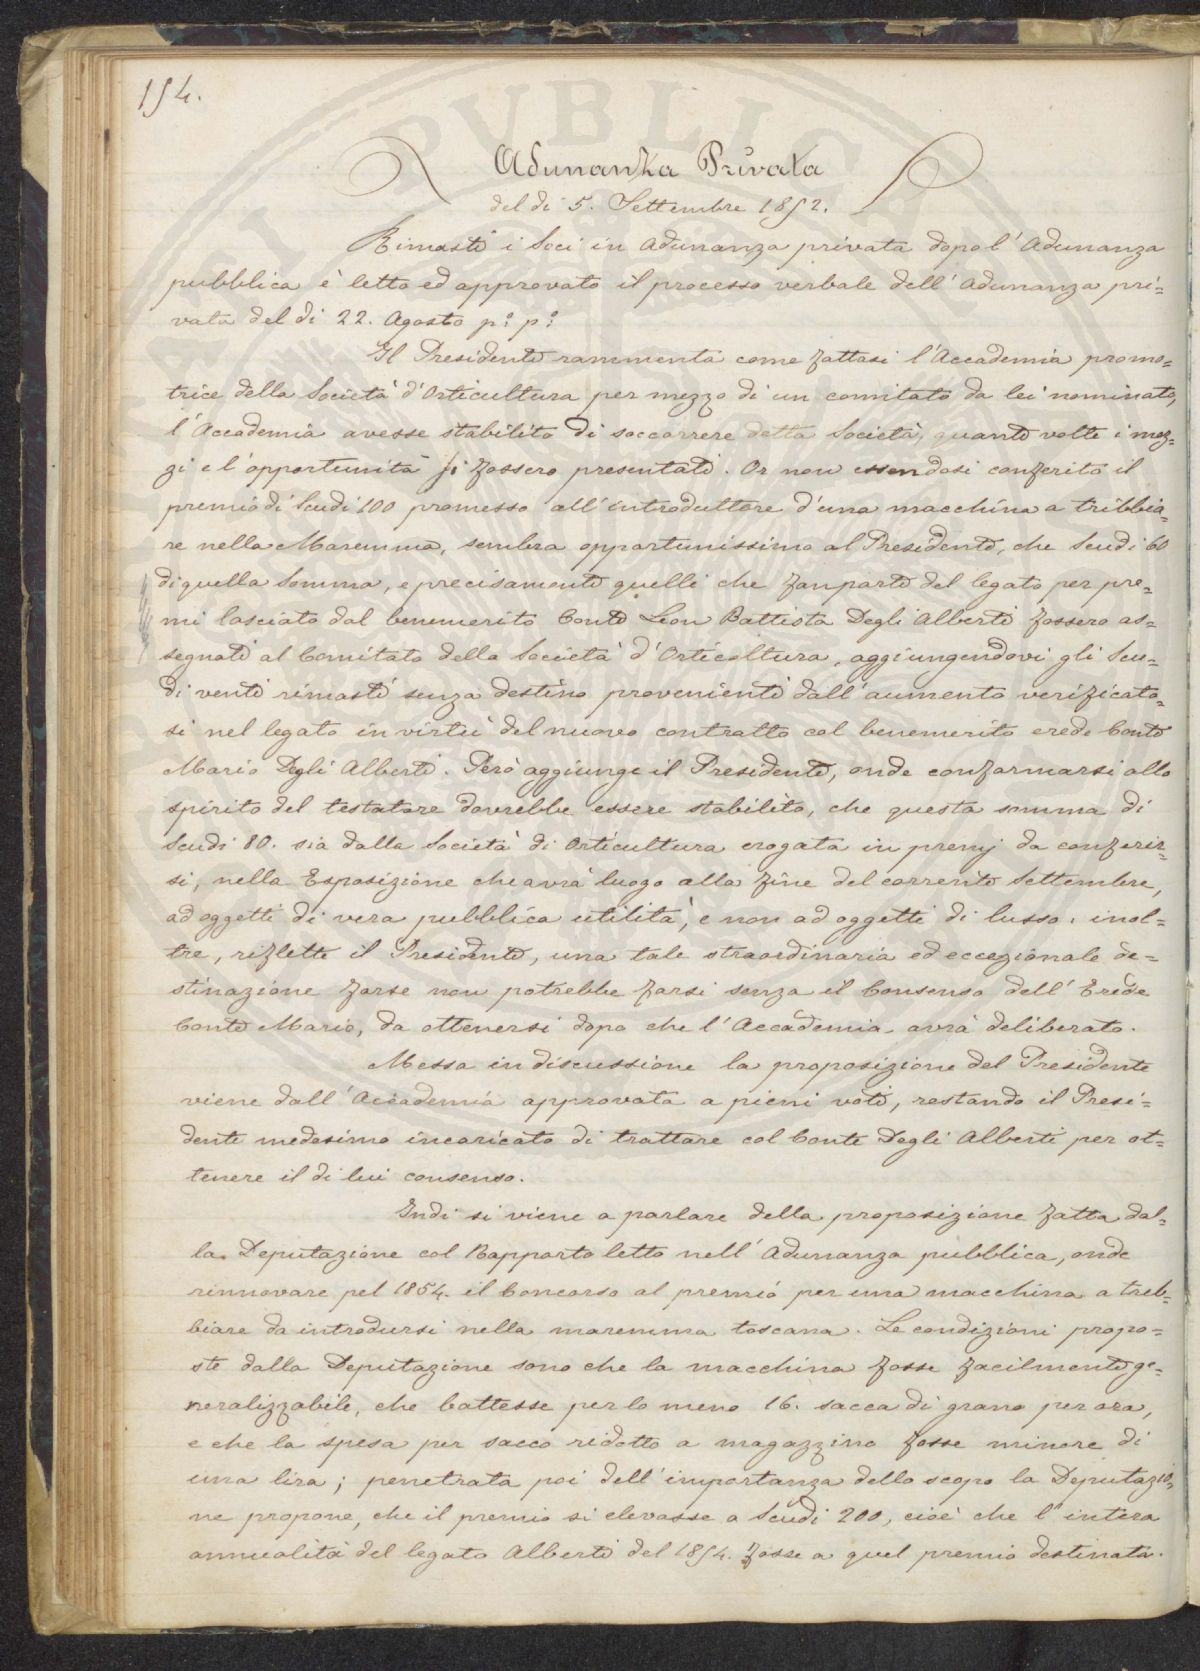 154.
Adunanza Privata
del dì 5. Settembre 1852.
Rimasti i Soci in adunanza privata dopo l'adunanza
pubblica è letto ed approvato il processo verbale dell'adunanza pri=
vata del dì 22. Agosto p.º p.º
Il Presidente rammenta come fattasi l'Accademia promo=
trice della Società d'Orticultura per mezzo di un comitato da lei nominato,
l'Accademia avesse stabilito di soccorrere detta Società, quante volte i mez=
zi e l'opportunità si fossero presentati. Or non essendosi conferito il
premio di Scudi 100 promesso all'introduttore d'una macchina a tribbia=
re nella Maremma, sembra opportunissimo al Presidente, che Scudi 60
di quella somma, e precisamente quelli che fan parte del legato per pre=
mi lasciato dal benemerito Conte Leon Battista Degli Alberti fossero as=
segnati al Comitato della Società d'Orticoltura, aggiungendovi gli Scu=
di venti rimasti senza destino provenienti dall'aumento verificato=
si nel legato in virtù del nuovo contratto col benemerito erede Conte
Mario Degli Alberti. Però aggiunge il Presidente, onde conformarsi allo
spirito del testatore dovrebbe essere stabilito, che questa somma di
Scudi 80. sia dalla Società di Orticultura erogata in premj da conferir=
si, nella Esposizione che avrà luogo alla fine del corrente Settembre,
ad oggetti di vera pubblica utilità, e non ad oggetti di lusso. inol=
tre, riflette il Presidente, una tale straordinaria ed eccezionale de=
stinazione forse non potrebbe farsi senza il Consenso dell'Erede
Conte Mario, da ottenersi dopo che l'Accademia avrà deliberato.
Messa in discussione la proposizione del Presidente
viene dall'Accademia approvata a pieni voti, restando il Presi=
dente medesimo incaricato di trattare col Conte Degli Alberti per ot=
tenere il di lui consenso.
Indi si viene a parlare della proposizione fatta dal=
la Deputazione col Rapporto letto nell'Adunanza pubblica, onde
rinnovare pel 1854. il Concorso al premio per una macchina a treb=
biare da introdursi nella maremma toscana. Le condizioni propo=
ste dalla Deputazione sono che la macchina fosse facilmente ge=
neralizzabile, che battesse per lo meno 16. sacca di grano per ora,
e che la spesa per sacco ridotto a magazzino fosse minore di
una lira; penetrata poi dell'importanza dello scopo la Deputazio=
ne propone, che il premio si elevasse a Scudi 200, cioè che l'intera
annualità del legato Alberti del 1854. fosse a quel premio destinata.